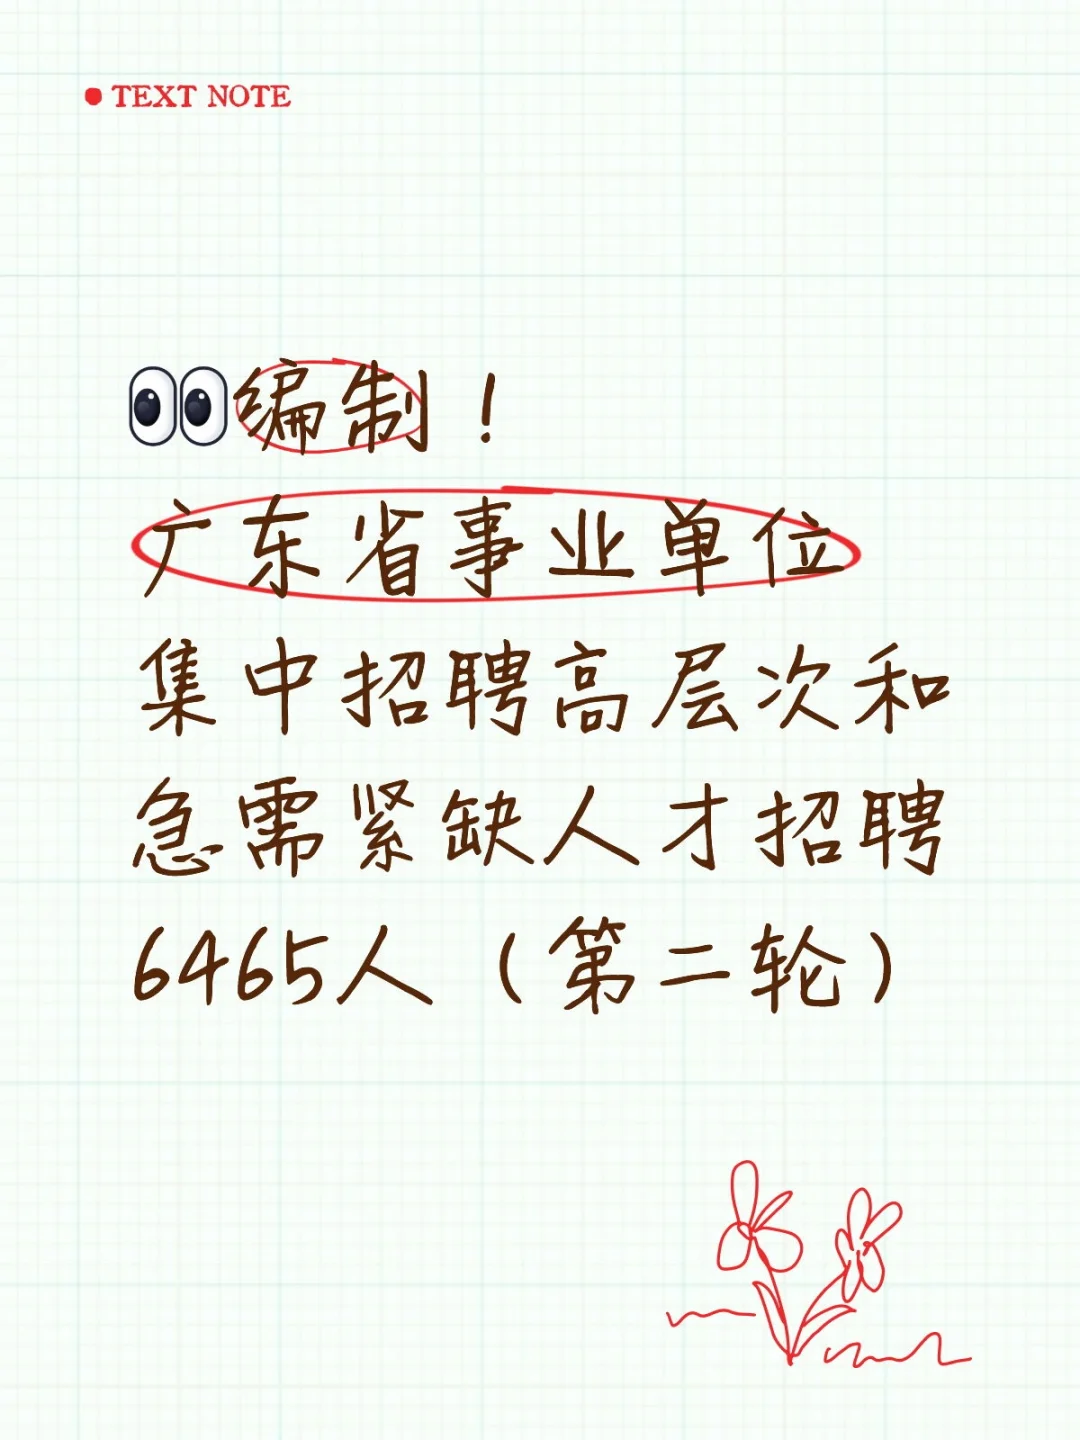 TEXT NOTE
👀编制！
广东省事业单位
集中招聘高层次和
急需紧缺人才招聘
6465人（第二轮）